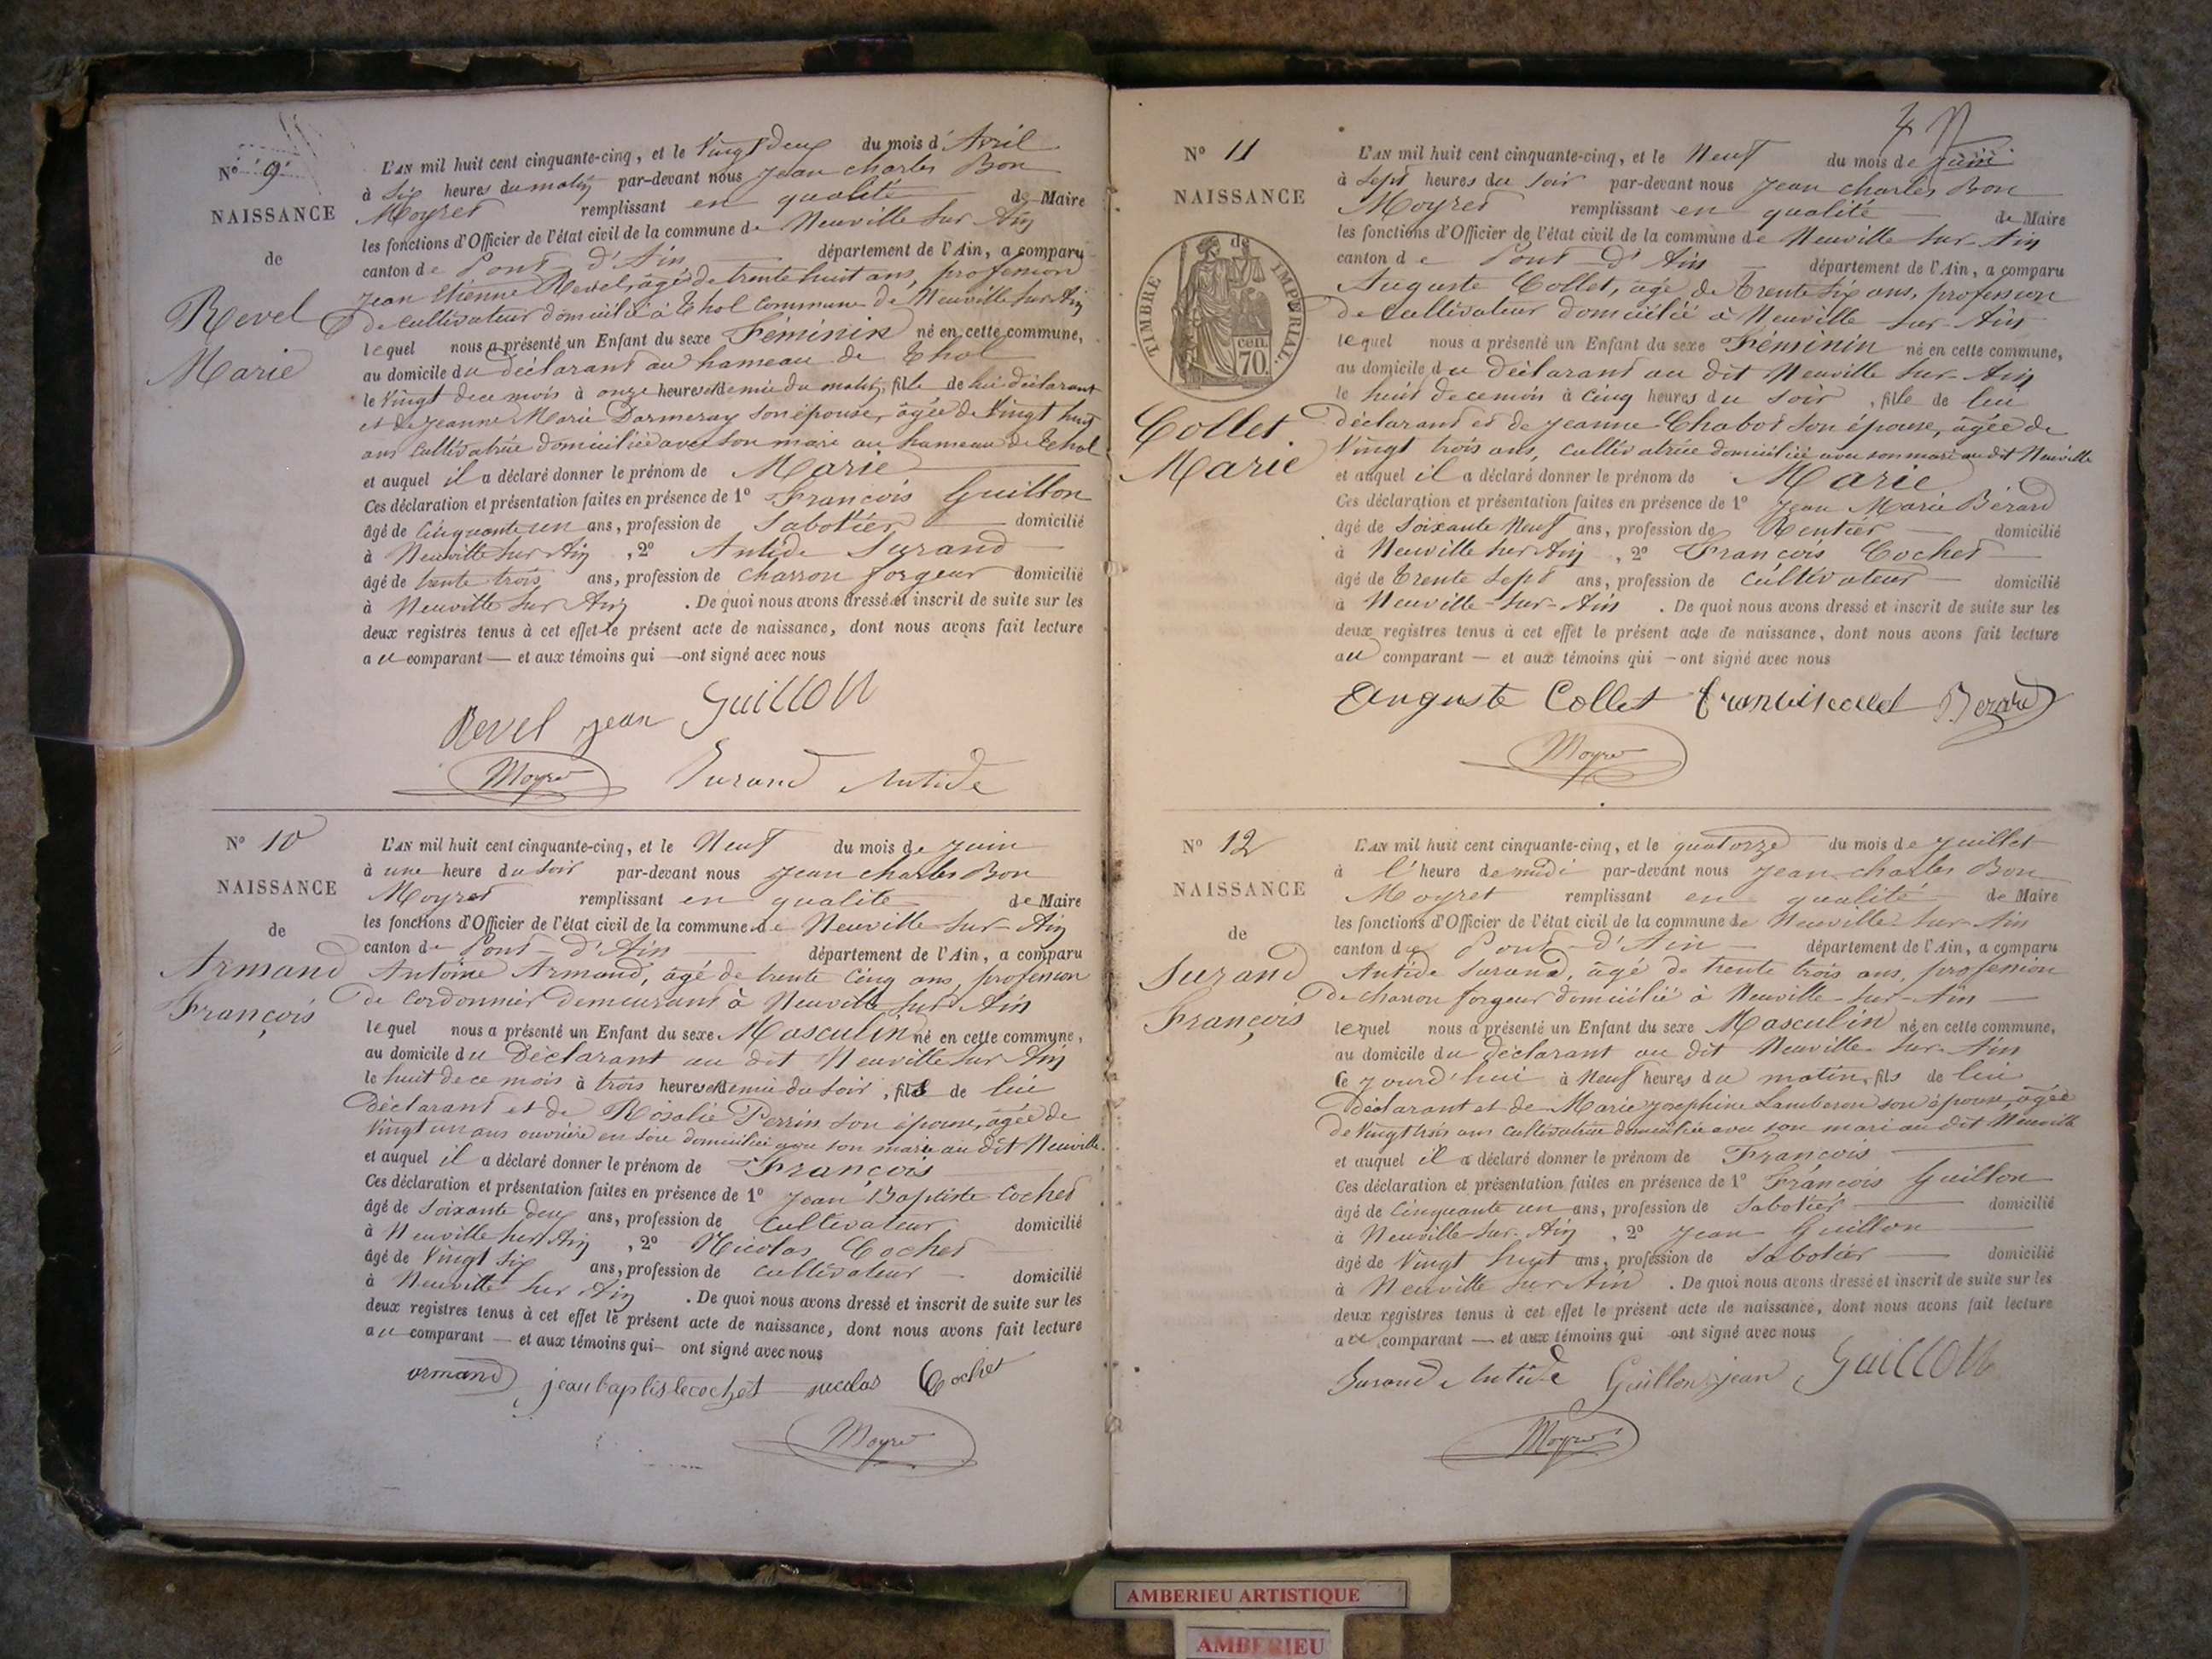 Nº 9
NAISSANCE
de
Revel
Marie
L'AN mil huit cent cinquante-cinq, et le Vingt deux du mois d'Avril
à Six heures du matin par-devant nous Jean charles Bon
Moyret remplissant en qualité de Maire
les fonctions d'Officier de l'état civil de la commune de Neuville sur Ain
canton de Pont d'Ain département de l'Ain, a comparu
Jean Etienne Revel, âgé de trente huit ans, profession
de cultivateur domicilié à Thol commune de Neuville sur Ain
lequel nous a présenté un Enfant du sexe Féminin né en cette commune,
au domicile du déclarant au hameau de Thol
le Vingt de ce mois à onze heures et demie du matin, fille de lui déclarant
et de Jeanne Marie Darmeray son épouse, âgée de Vingt huit
ans cultivatrice domiciliée avec son mari au hameau de Thol
et auquel il a déclaré donner le prénom de Marie
Ces déclaration et présentation faites en présence de 1º François Guillon
âgé de cinquante un ans, profession de Sabotier domicilié
à Neuville sur Ain , 2º Antide Surand
âgé de trente trois ans, profession de charron forgeur domicilié
à Neuville sur Ain . De quoi nous avons dressé et inscrit de suite sur les
deux registres tenus à cet effet le présent acte de naissance, dont nous avons fait lecture
au comparant — et aux témoins qui — ont signé avec nous
Revel jean Guillon
Moyret Surand Antide
Nº 10
NAISSANCE
de
Armand
François
L'AN mil huit cent cinquante-cinq, et le Neuf du mois de Juin
à une heure du soir par-devant nous Jean charles Bon
Moyret remplissant en qualité de Maire
les fonctions d'Officier de l'état civil de la commune de Neuville sur Ain
canton de Pont d'Ain département de l'Ain, a comparu
Antoine Armand, âgé de trente cinq ans, profession
de Cordonnier demeurant à Neuville sur Ain
lequel nous a présenté un Enfant du sexe Masculin né en cette commune,
au domicile du Déclarant au dit Neuville sur Ain
le huit de ce mois à trois heures et demie du soir , fils de lui
Déclarant et de Rosalie Perrin son épouse, âgée de
Vingt un ans ouvrière en soie domiciliée avec son mari au dit Neuville
et auquel il a déclaré donner le prénom de François
Ces déclaration et présentation faites en présence de 1º Jean Baptiste Cochet
âgé de soixante deux ans, profession de Cultivateur domicilié
à Neuville sur Ain , 2º Nicolas Cochet
âgé de Vingt Six ans, profession de cultivateur domicilié
à Neuville sur Ain . De quoi nous avons dressé et inscrit de suite sur les
deux registres tenus à cet effet le présent acte de naissance, dont nous avons fait lecture
au comparant — et aux témoins qui — ont signé avec nous
armand jean baptiste cochet nicolas Cochet
Moyret
Nº 11
NAISSANCE
de
TIMBRE IMPERIAL.
70. cen.
Collet
Marie
L'AN mil huit cent cinquante-cinq, et le Neuf du mois de Juin
à Sept heures du soir par-devant nous Jean charles Bon
Moyret remplissant en qualité de Maire
les fonctions d'Officier de l'état civil de la commune de Neuville sur-Ain
canton de Pont d'Ain département de l'Ain, a comparu
Auguste Collet, âgé de trente six ans, profession
de cultivateur domicilié à Neuville sur-Ain
lequel nous a présenté un Enfant du sexe Féminin né en cette commune,
au domicile du déclarant au dit Neuville sur-Ain
le huit de ce mois à cinq heures du soir , fille de lui
déclarant et de Jeanne Chabot son épouse, âgée de
Vingt trois ans, cultivatrice domiciliée avec son mari au dit Neuville
et auquel il a déclaré donner le prénom de Marie
Ces déclaration et présentation faites en présence de 1º Jean Marie Bérard
âgé de soixante Neuf ans, profession de Rentier domicilié
à Neuville sur Ain , 2º François Cochet
âgé de trente sept ans, profession de cultivateur domicilié
à Neuville-sur-Ain . De quoi nous avons dressé et inscrit de suite sur les
deux registres tenus à cet effet le présent acte de naissance, dont nous avons fait lecture
au comparant — et aux témoins qui — ont signé avec nous
Auguste Collet Berard
Moyret
Nº 12
NAISSANCE
de
Surand
François
L'AN mil huit cent cinquante-cinq, et le quatorze du mois de Juillet
à l'heure de midi par-devant nous Jean charles Bon
Moyret remplissant en qualité de Maire
les fonctions d'Officier de l'état civil de la commune de Neuville-sur-Ain
canton de Pont-d'Ain département de l'Ain, a comparu
Antide Surand, âgé de trente trois ans, profession
de charron forgeur domicilié à Neuville-sur-Ain
lequel nous a présenté un Enfant du sexe Masculin né en cette commune,
au domicile du déclarant au dit Neuville-sur-Ain
Ce jourd'hui à Neuf heures du matin, fils de lui
Déclarant et de Marie Josephine Lamberon son épouse, âgée
de Vingt trois ans cultivatrice domiciliée avec son mari au dit Neuville
et auquel il a déclaré donner le prénom de François
Ces déclaration et présentation faites en présence de 1º François Guillon
âgé de Cinquante un ans, profession de Sabotier domicilié
à Neuville-sur-Ain , 2º Jean Guillon
âgé de Vingt huit ans, profession de Sabotier domicilié
à Neuville sur Ain . De quoi nous avons dressé et inscrit de suite sur les
deux registres tenus à cet effet le présent acte de naissance, dont nous avons fait lecture
au comparant — et aux témoins qui ont signé avec nous
Surand Antide Guillon jean Guillon
Moyret
AMBERIEU ARTISTIQUE
AMBERIEU